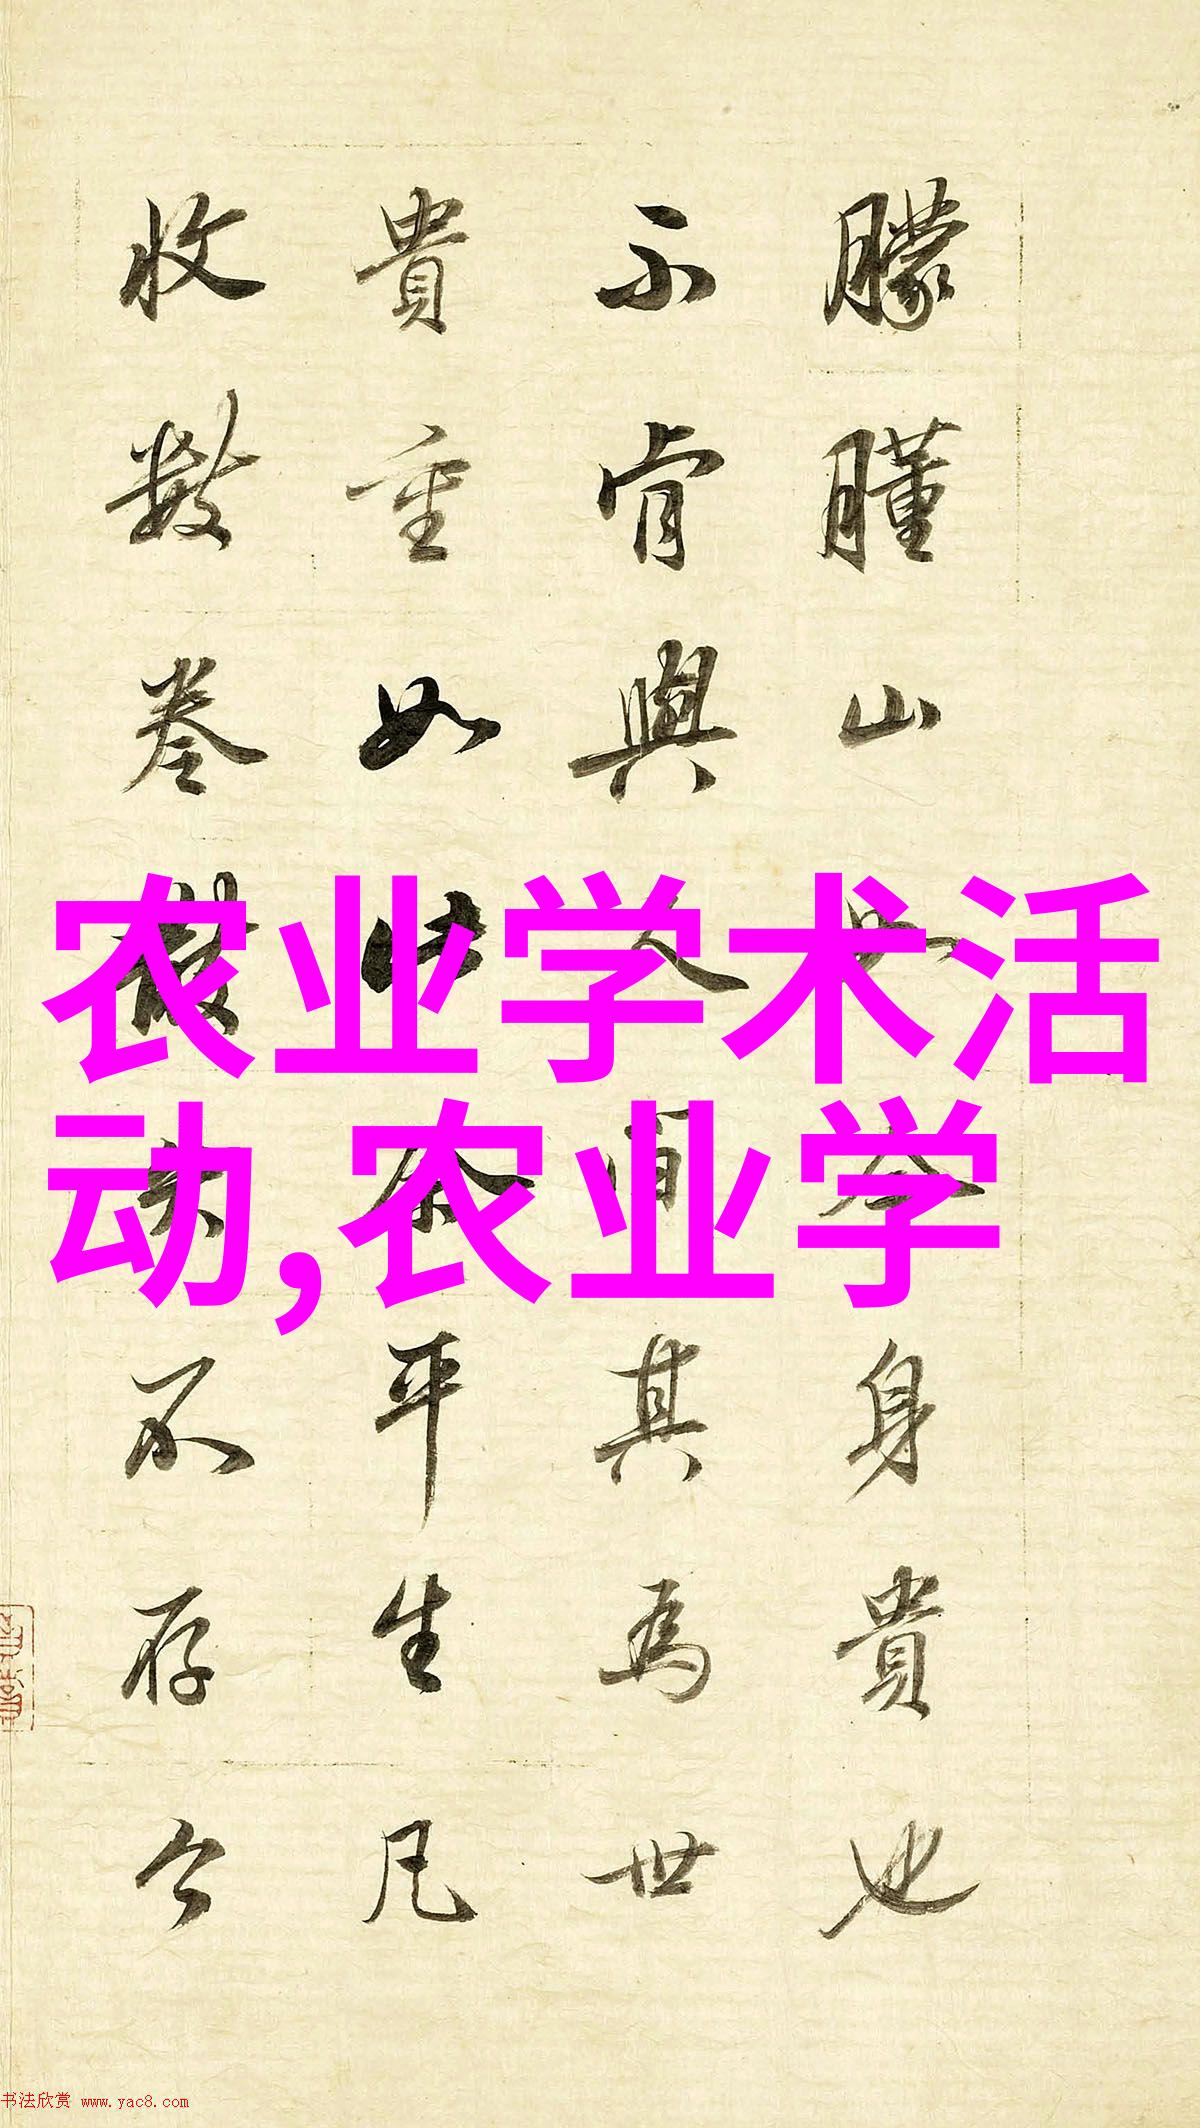 朦朣山身貴也
不肯與人其為世
貴重如此余平生凡
收數卷散失不存今
农业学术活
动,农业学
书法欣赏 www.yac8.com